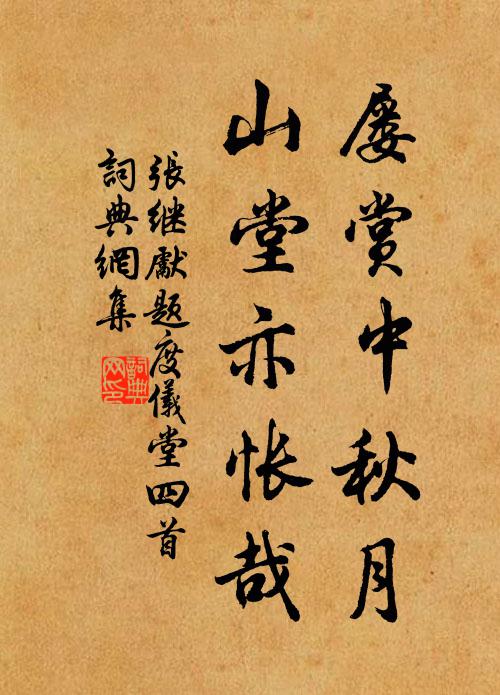 屡赏中秋月
山堂亦怅哉
張继獻題度儀堂四首
詞典網集
詞典
网印